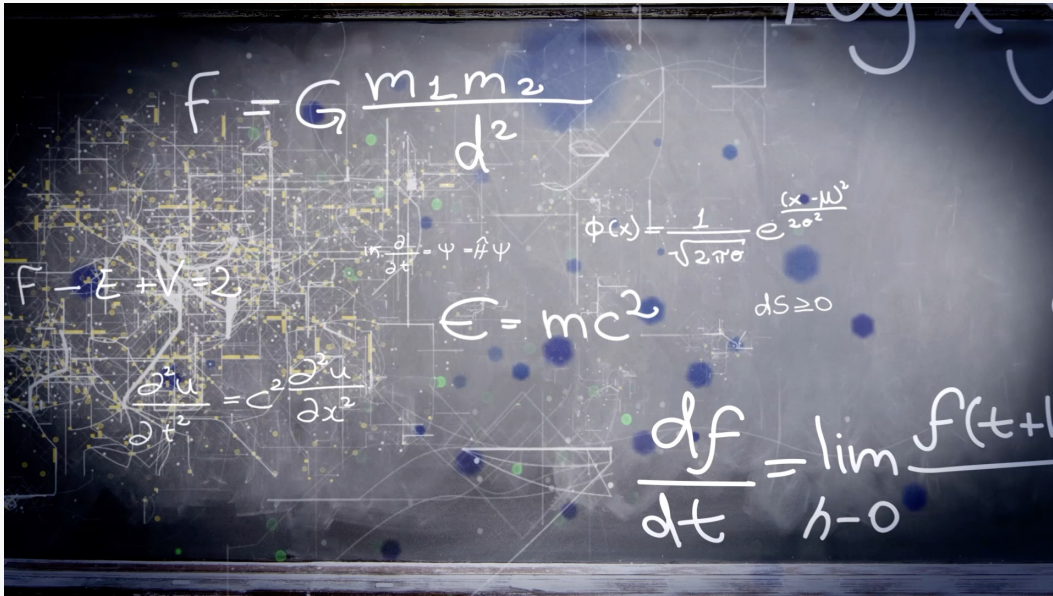 F = G m1m2 / d²
φ(x) = 1 / √2πσ e^(x-μ)² / 2σ²
iℏ ∂ / ∂t = ψ = Ĥψ
F - E + V = 2
E = mc²
dS ≥ 0
∂²u / ∂t² = c² ∂²u / ∂x²
df / dt = lim h-0 f(t+